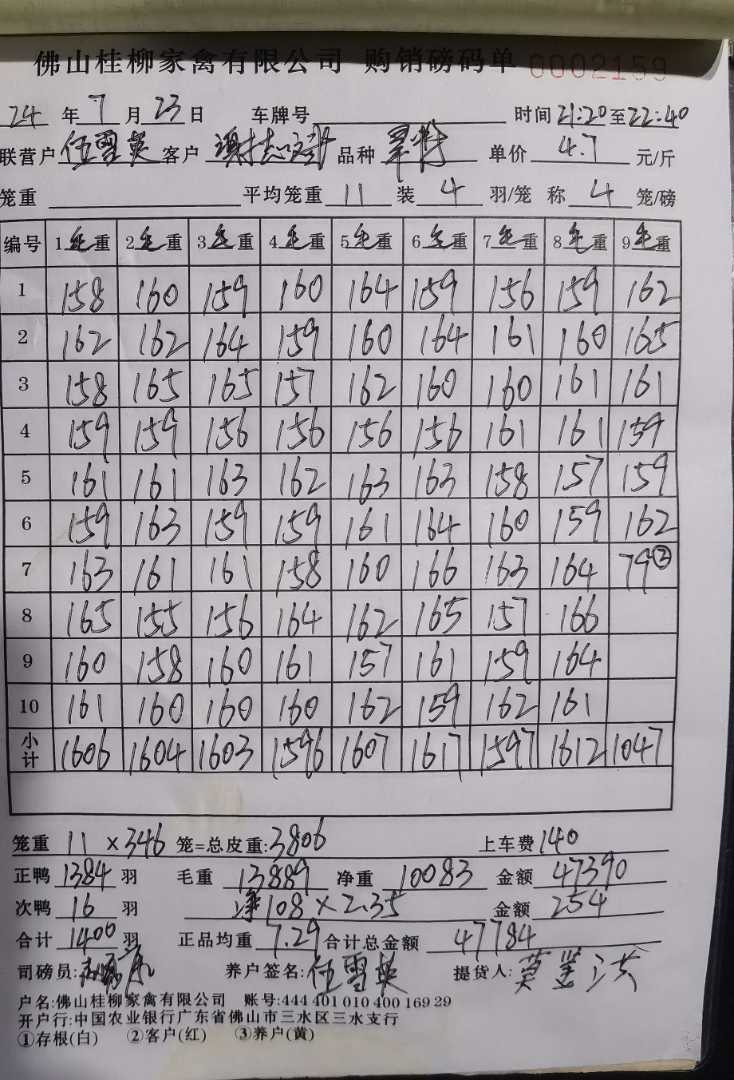 佛山桂柳家禽有限公司 购销磅码单 0002159
24 年 7 月 23 日 车牌号 时间 21:20 至 22:40
联营户 伍雪英 客户 品种 单价 4.7 元/斤
笼重 平均笼重 11 装 4 羽/笼 称 4 笼/磅
编号 1毛重 2毛重 3毛重 4毛重 5毛重 6毛重 7毛重 8毛重 9毛重
1 158 160 159 160 164 159 156 159 162
2 162 162 164 159 160 164 161 160 165
3 158 165 165 157 162 160 160 161 161
4 159 159 156 156 156 156 161 161 159
5 161 161 163 162 163 163 158 157 159
6 159 163 159 159 161 164 160 159 162
7 163 161 161 158 160 166 163 164 79②
8 165 155 156 164 162 165 157 166
9 160 158 160 161 157 161 159 164
10 161 160 160 160 162 159 162 161
小计 1606 1604 1603 1596 1607 1617 1597 1612 1047
笼重 11 ×346 笼=总皮重:3806 上车费 140
正鸭 1384 羽 毛重 13889 净重 10083 金额 47390
次鸭 16 羽 净108×2.35 金额 254
合计 1400 羽 正品均重 7.29 合计总金额 47784
司磅员: 养户签名: 伍雪英 提货人:
户名:佛山桂柳家禽有限公司 账号:444 401 010 400 169 29
开户行:中国农业银行广东省佛山市三水区三水支行
①存根(白) ②客户(红) ③养户(黄)